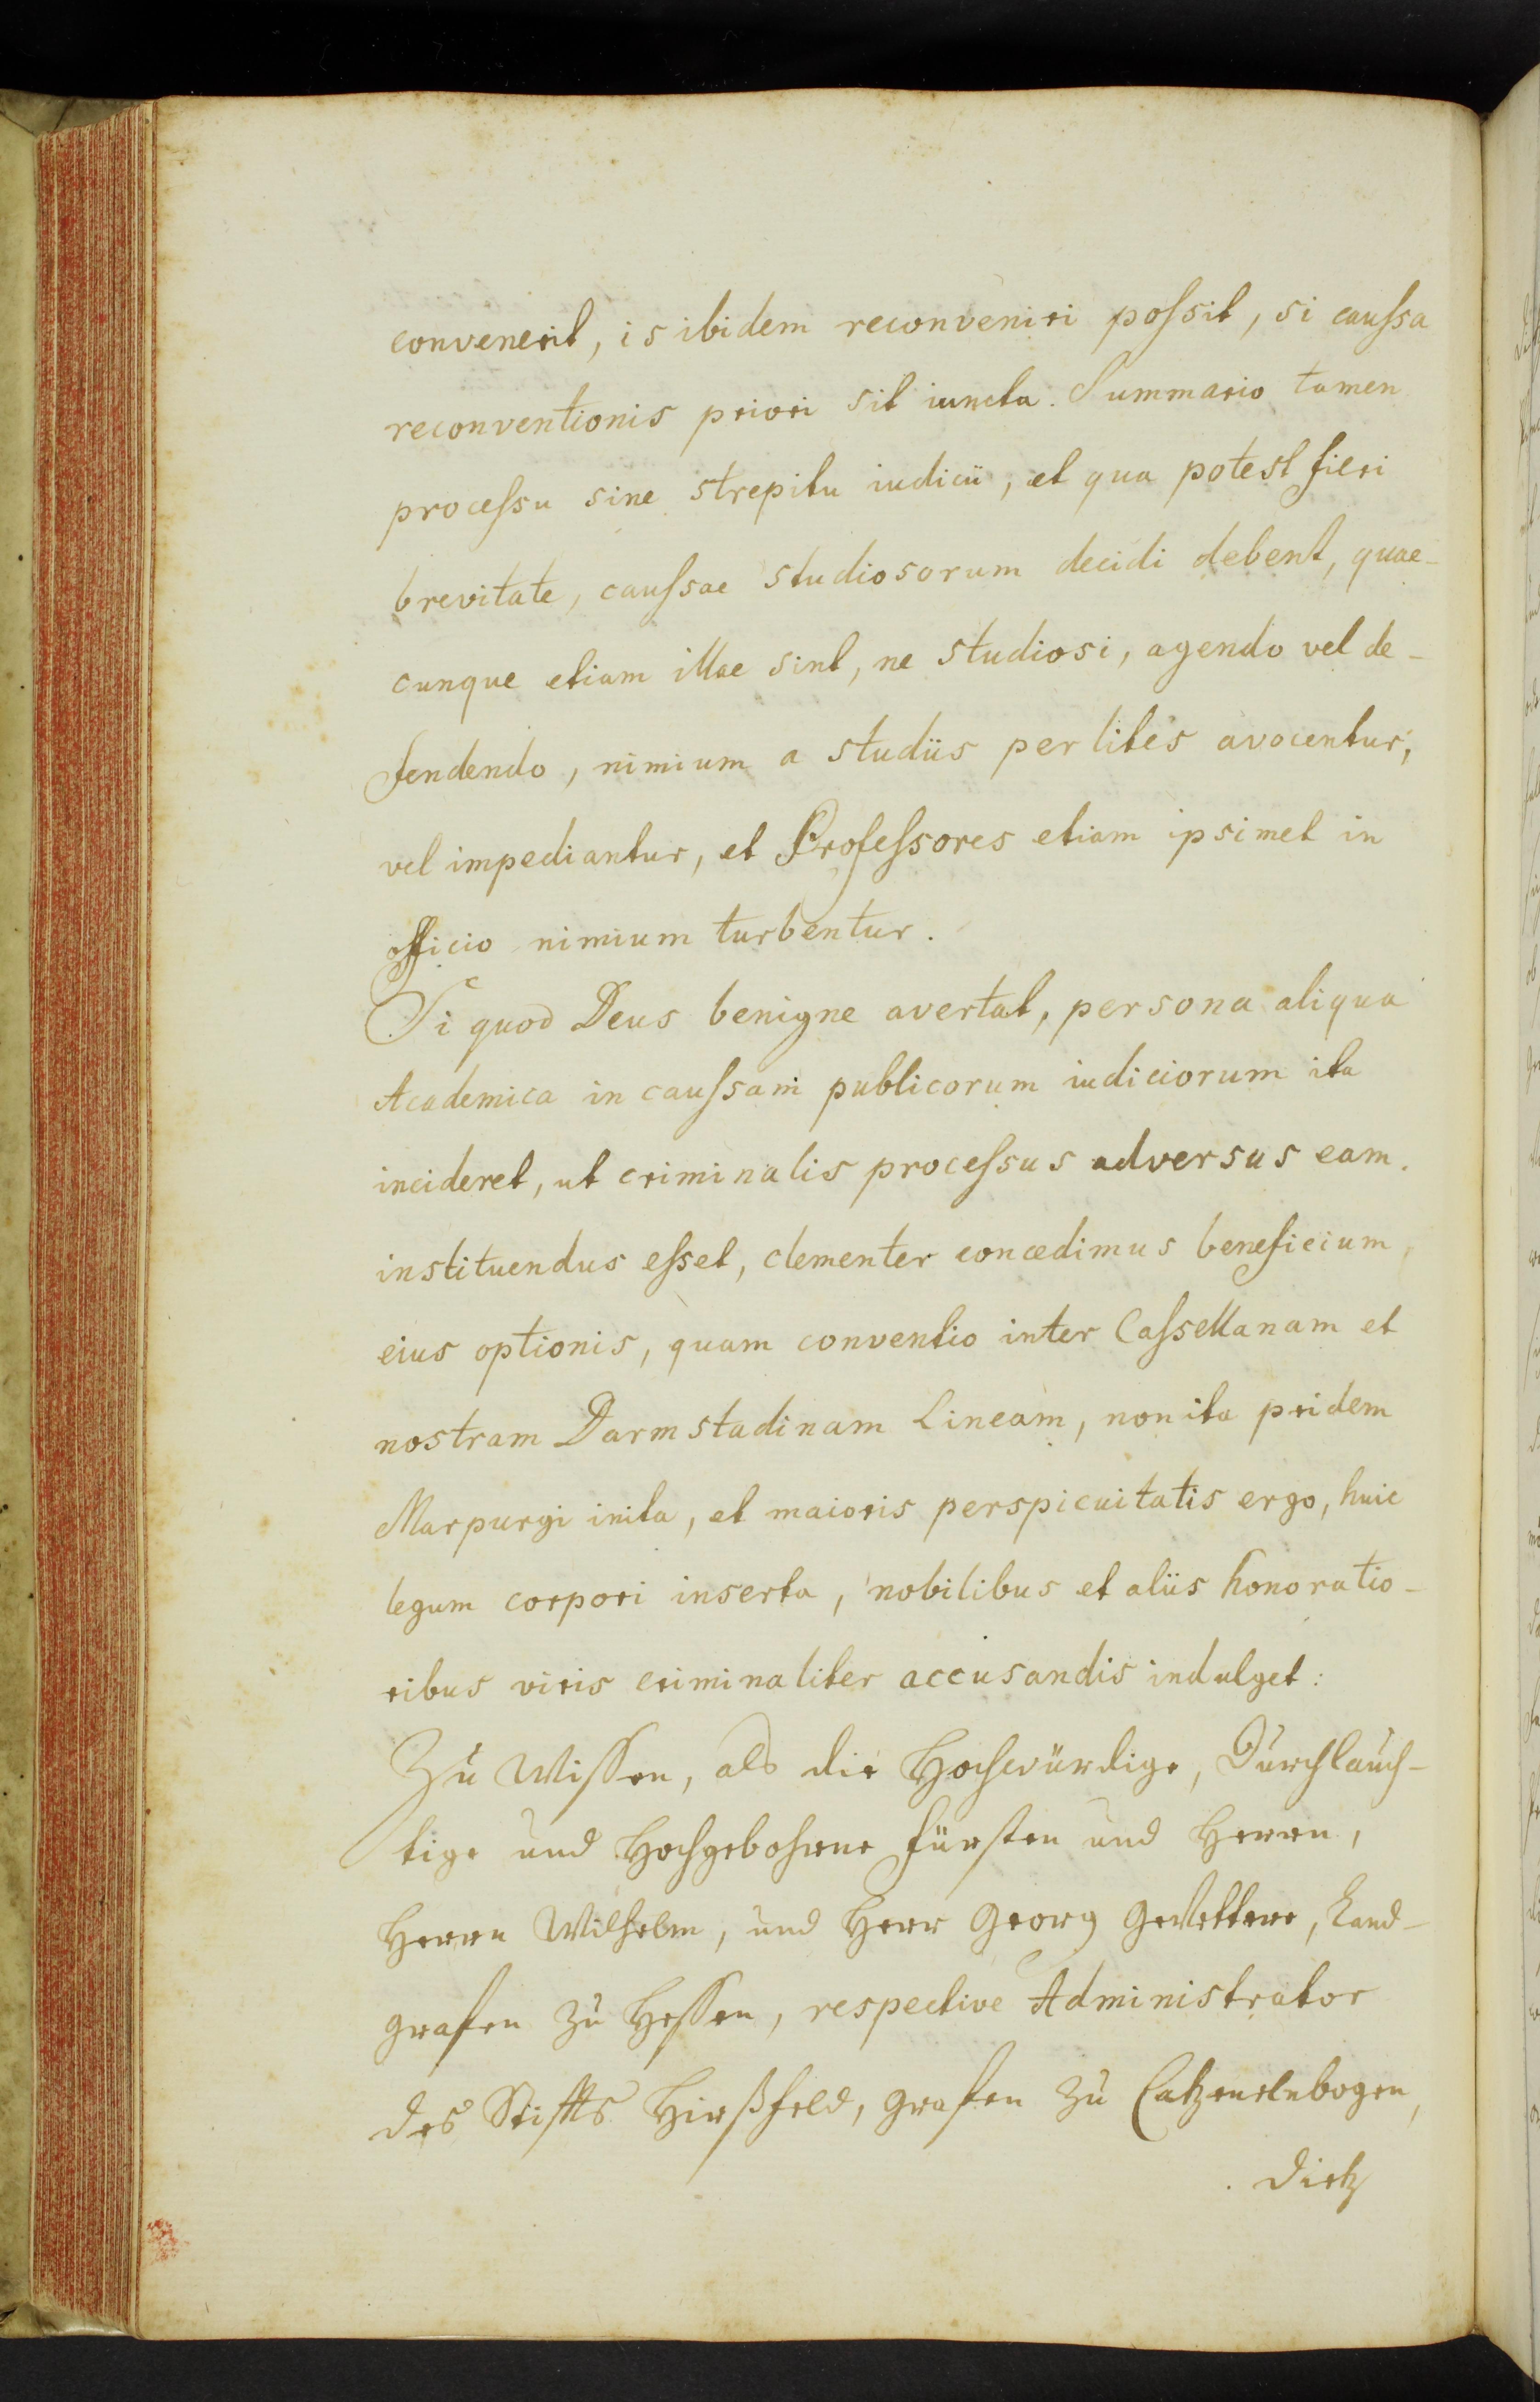 convenerit, is ibidem reconveniri possit, si caussa
reconventionis priori sit iuncta. Summario tamen
processu sine strepitu iudicii, et qua potest fieri
brevitate, caussae studiosorum decidi debent, quae-
cunque etiam illae sint, ne studiosi, agendo vel de-
fendendo, nimium a studiis per lites avocentur,
vel impediantur, et Professores etiam ipsimet in
officio nimium turbentur.
Si quod Deus benigne avertat, persona aliqua
Academica in caussam publicorum iudiciorum ita
incideret, ut criminalis processus adversus eam
instituendus esset, clementer concedimus beneficium
eius optionis, quam conventio inter Cassellanam et
nostram Darmstadinam Lineam, non ita pridem
Marpurgi inita, et maioris perspicuitatis ergo, huic
legum corpori inserta, nobilibus et aliis honoratio-
ribus viris criminaliter accusandis indulget:
Zu Wissen, als die Hochwürdige, Durchlauch-
tige und Hochgebohrne Fürsten und Herrn,
Herrn Wilhelm, und Herr Georg Gevettere, Land-
grafen zu Hessen, respective Administrator
des Stiffts Hirßfeld, Grafen zu Catzenelnbogen,
Dietz